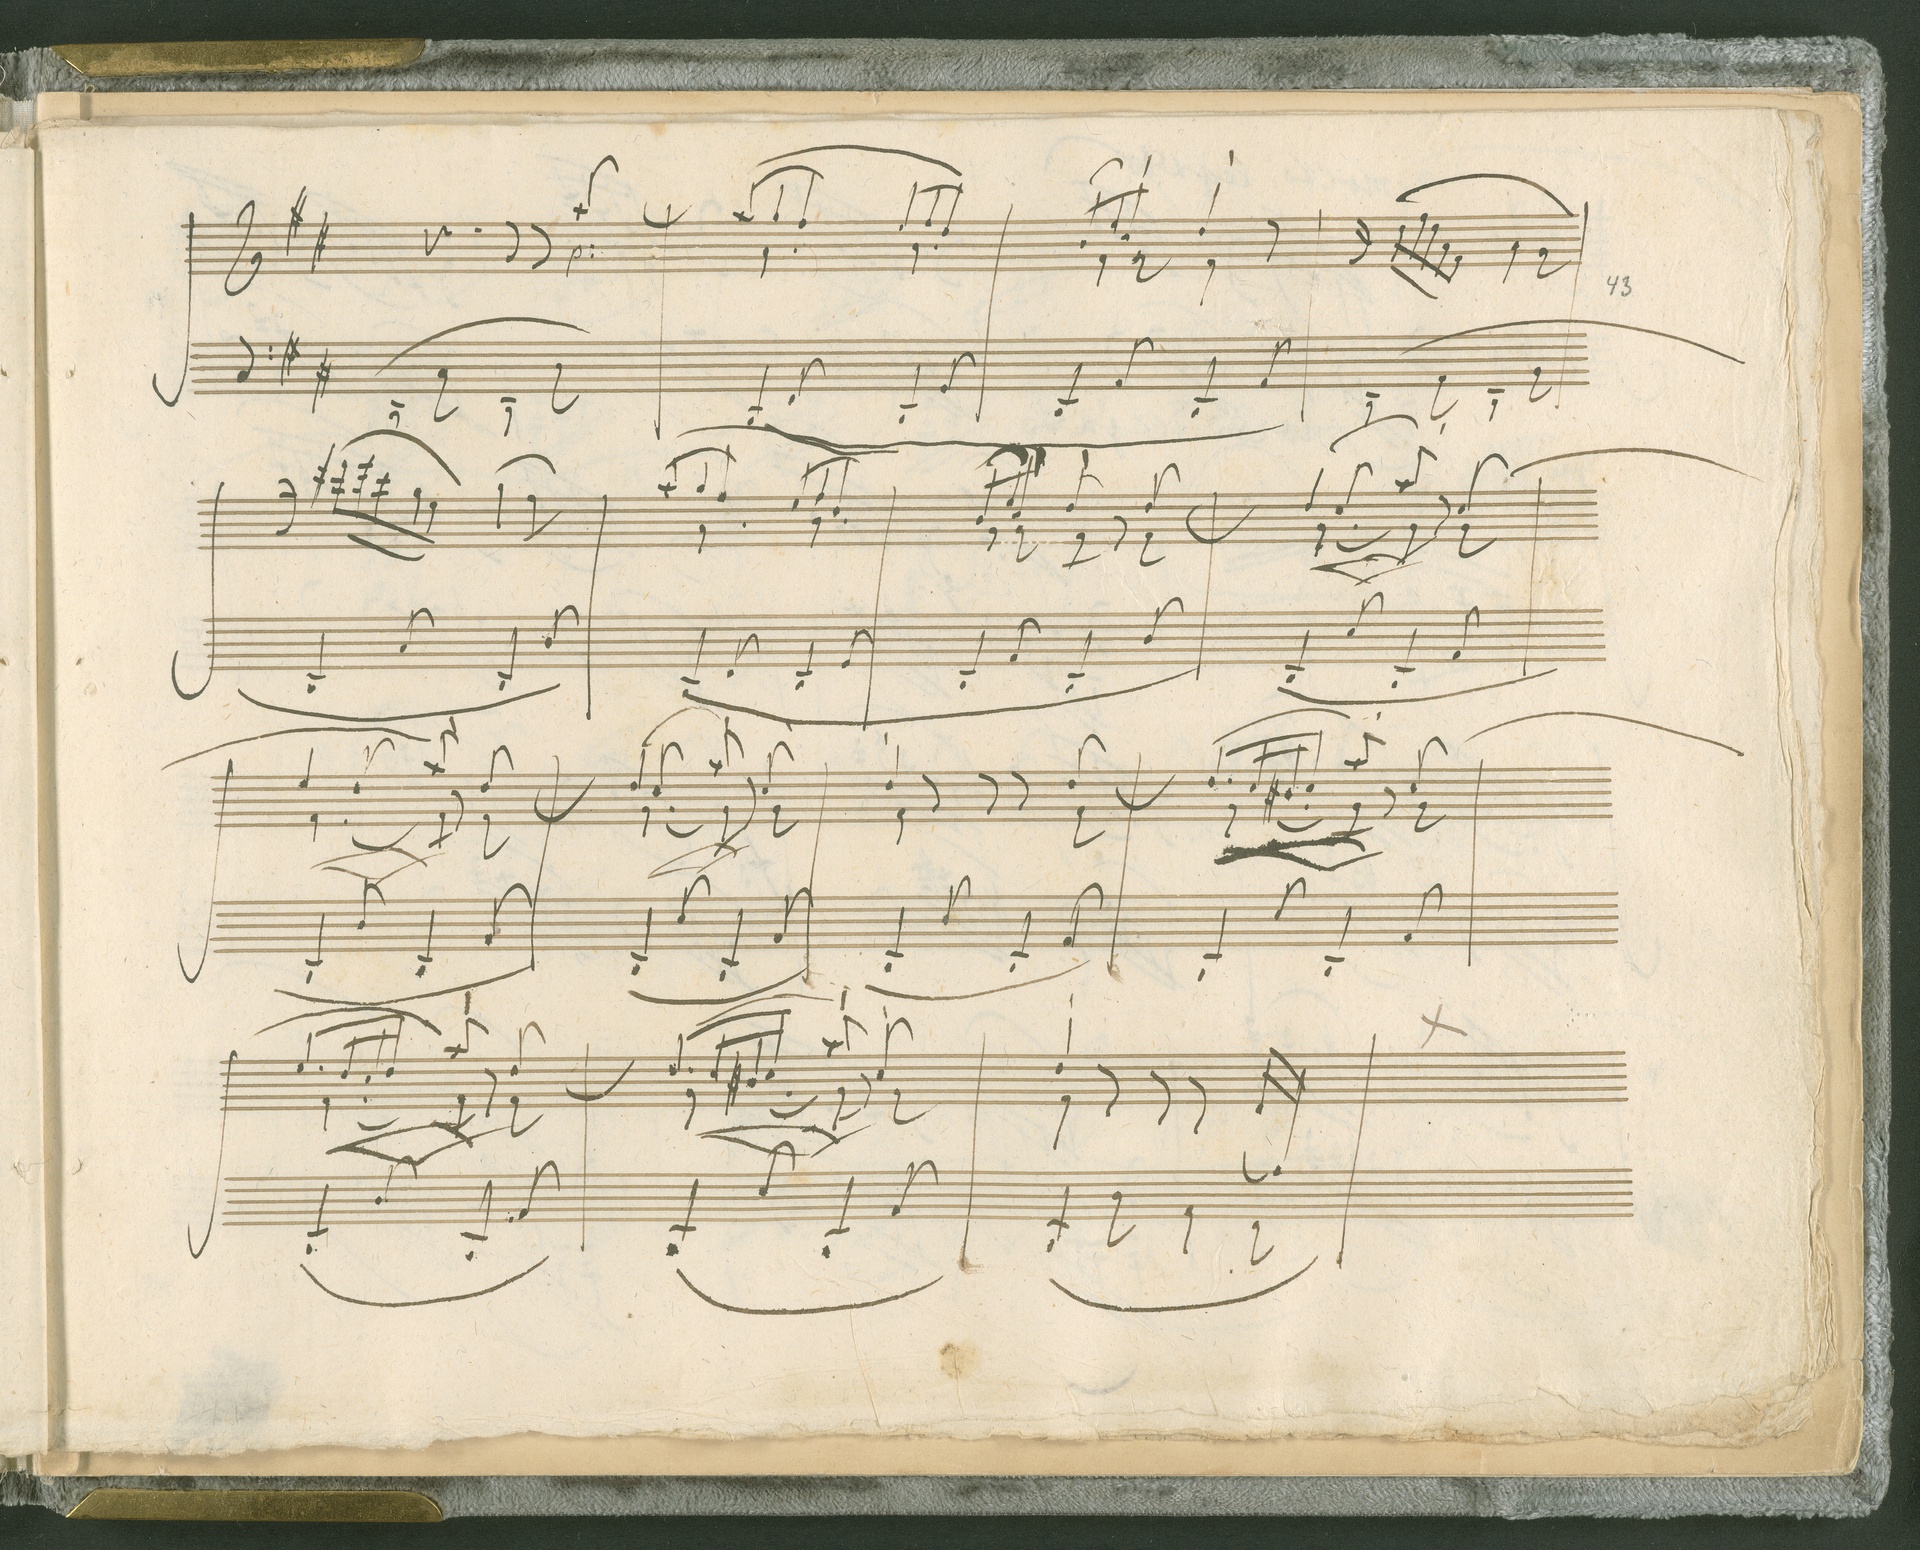 p:
43